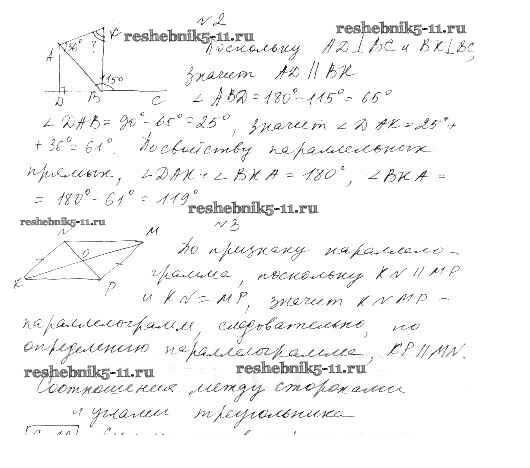 №2
reshebnik5-11.ru reshebnik5-11.ru
K
A 36° ? Поскольку AD⊥BC и BK⊥BC,
значит AD || BK
115°
D B C ∠ABD = 180° - 115° = 65°
∠DAB = 90° - 65° = 25°, значит ∠DAK = 25° +
+ 36° = 61°. По свойству параллельных
прямых, ∠DAK + ∠BKA = 180°, ∠BKA =
= 180° - 61° = 119°
reshebnik5-11.ru
reshebnik5-11.ru №3
N M
O По признаку паралелло-
K P грамма, поскольку KN || MP
и KN = MP, значит KNMP -
параллелограмм, следовательно, по
определению параллелограмма, KP || MN.
reshebnik5-11.ru reshebnik5-11.ru
Соотношения между сторонами
и углами треугольника